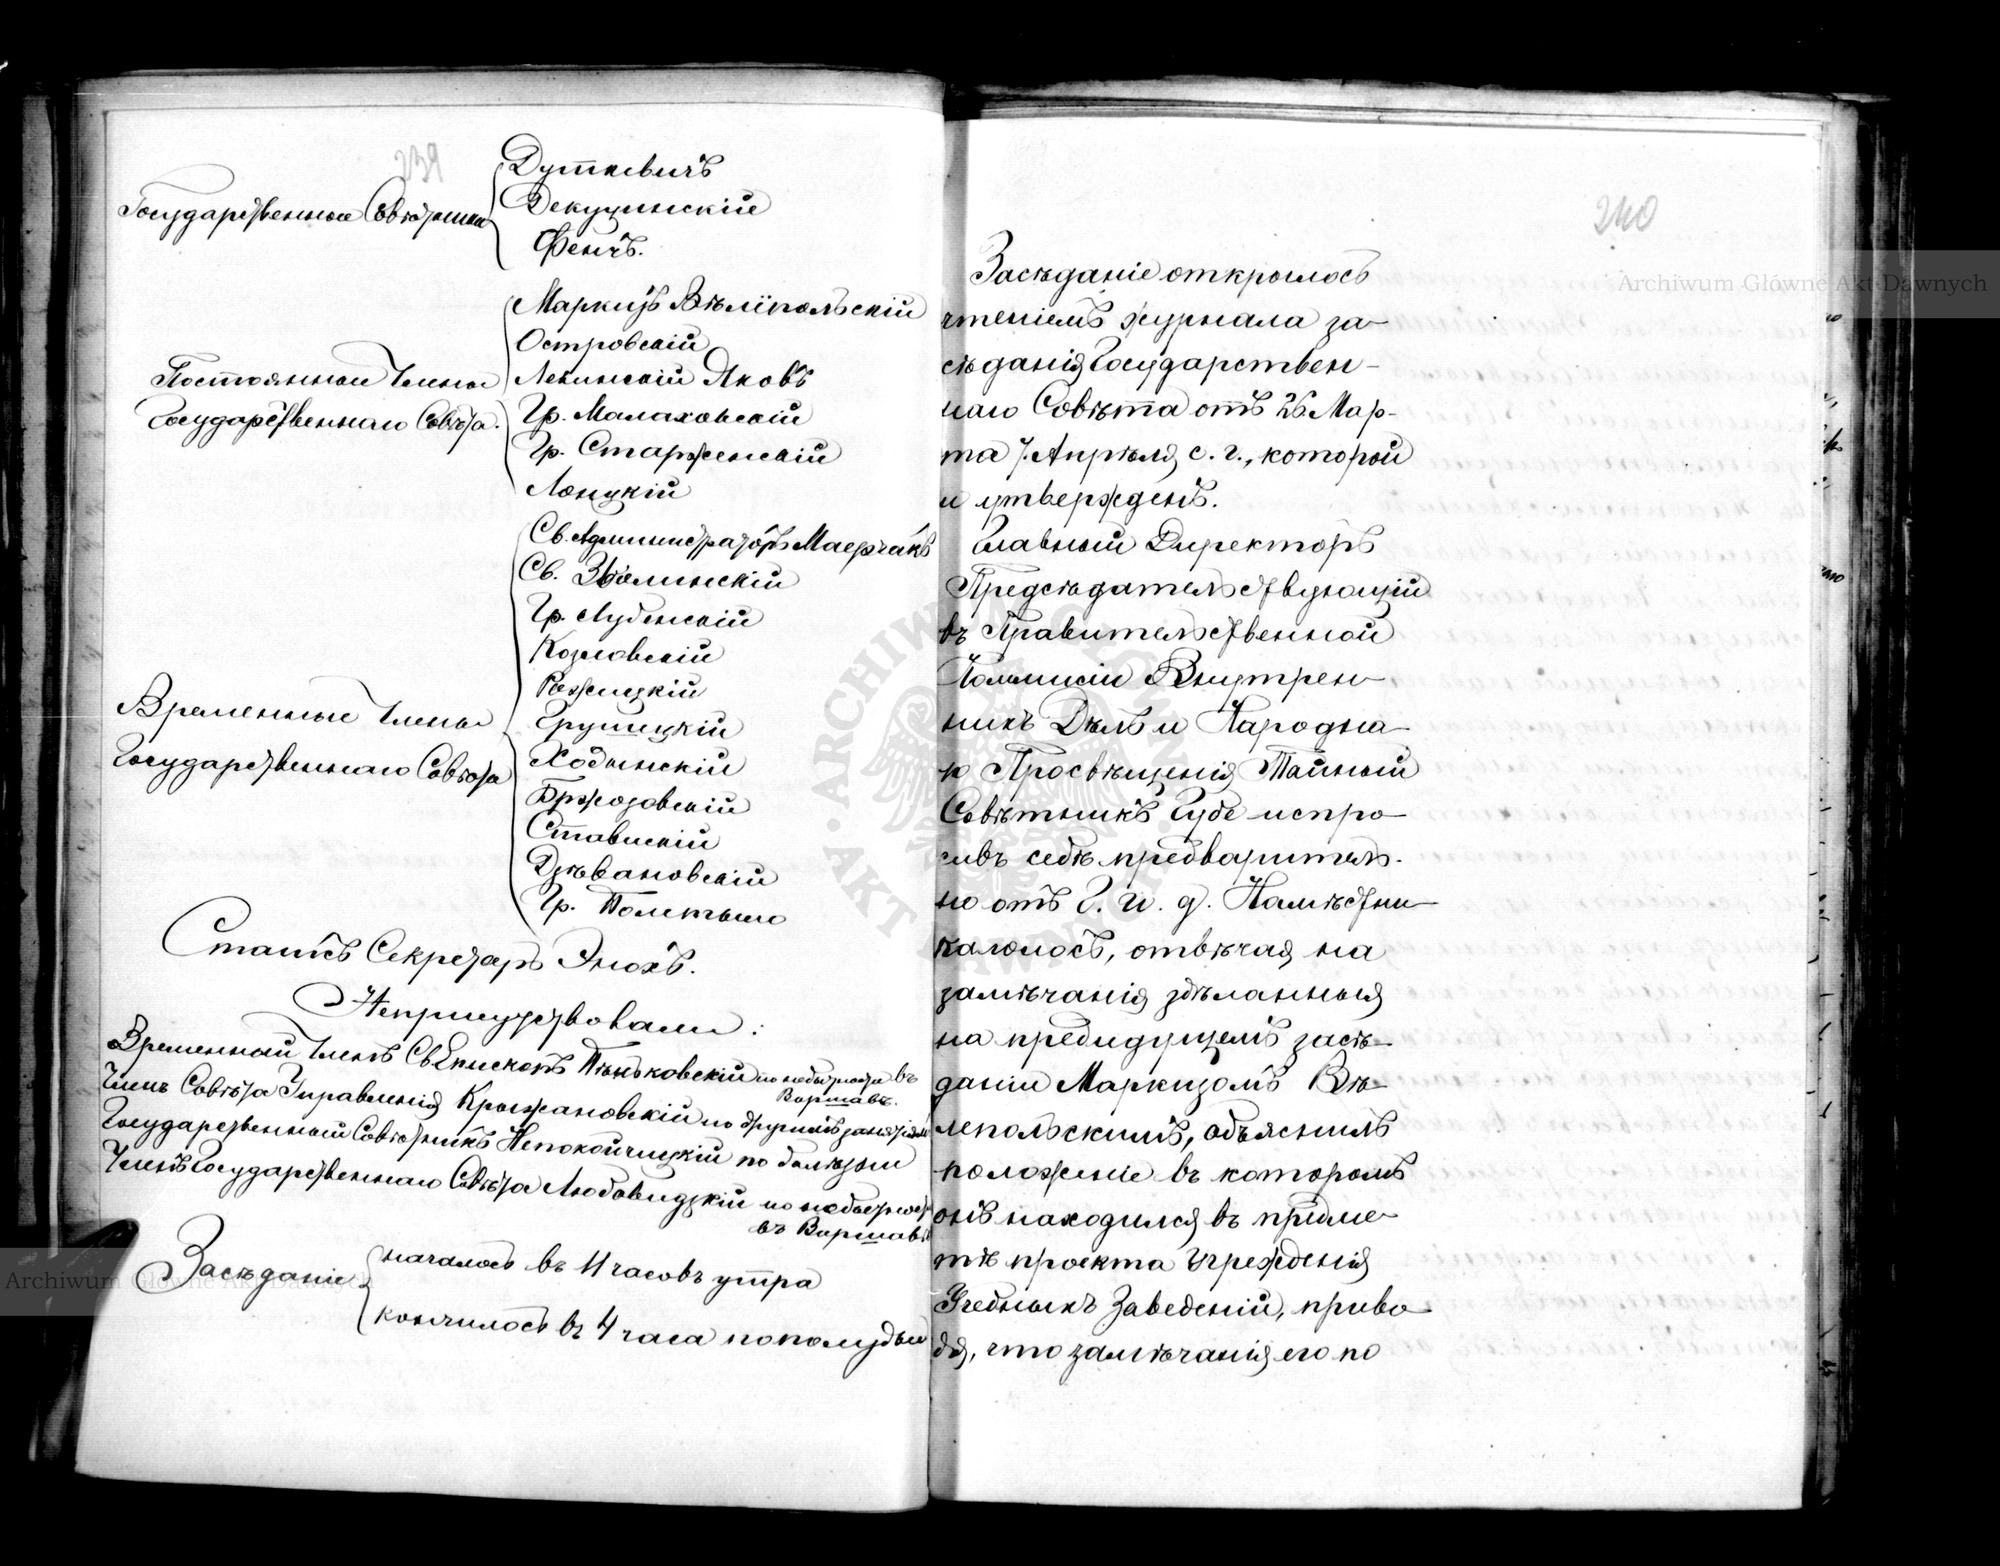 239
Государственные Совѣтники
Дуткевичъ
Декуцинскій
Фенчъ.
Постоянные Члены
Государственнаго Совѣта.
Маркизъ Вѣлёпольскій
Островскій
Левинскій Яковъ
Гр. Малаховскій
Гр. Старженскій
Лонцкій
Временные Члены
Государственнаго Совѣта
Св. Администраторъ Маерчакъ
Св. Зволинскій
Гр. Лубенскій
Козловскій
Режицкій
Грушецкій
Ходынскій
Бржозовскій
Ставискій
Дзѣвановскій
Гр. Полетыло
Статсъ Секретарь Энохъ.
Неприсутствовали:
Временный Членъ Св. Епископъ Пѣньковскій по небытности въ
Варшавѣ.
Членъ Совѣта Управленія Крыжановскій по другимъ занятіямъ
Государственный Совѣтникъ Непокойчицкій по болѣзни
Членъ Государственнаго Совѣта Любовидзкій по небытности
въ Варшавѣ
Засѣданіе
началось въ 11 часовъ утра
кончилось въ 4 часа пополудни
240
Засѣданіе открылось
чтеніемъ журнала за-
сѣданія Государствен-
наго Совѣта отъ 26 Мар-
та 7. Апрѣля с. г., который
и утвержденъ.
Главный Директоръ
Предсѣдательствующій
въ Правительственной
Коммисіи Внутрен-
нихъ Дѣлъ и Народна-
го Просвѣщенія Тайный
Совѣтникъ Губе испро-
сивъ себѣ предваритель-
но отъ Г. И. д. Намѣстни-
ка голосъ, отвѣчая на
замѣчанія здѣланныя
на предидущемъ засѣ-
даніи Маркизомъ Вѣ-
лепольскимъ, объяснилъ
положеніе въ которомъ
онъ находился въ предме-
тѣ проекта Учрежденія
Учебныхъ Заведеній, приво-
дя, что замѣчанія его по
Archiwum Główne Akt Dawnych
Archiwum Główne Akt Dawnych